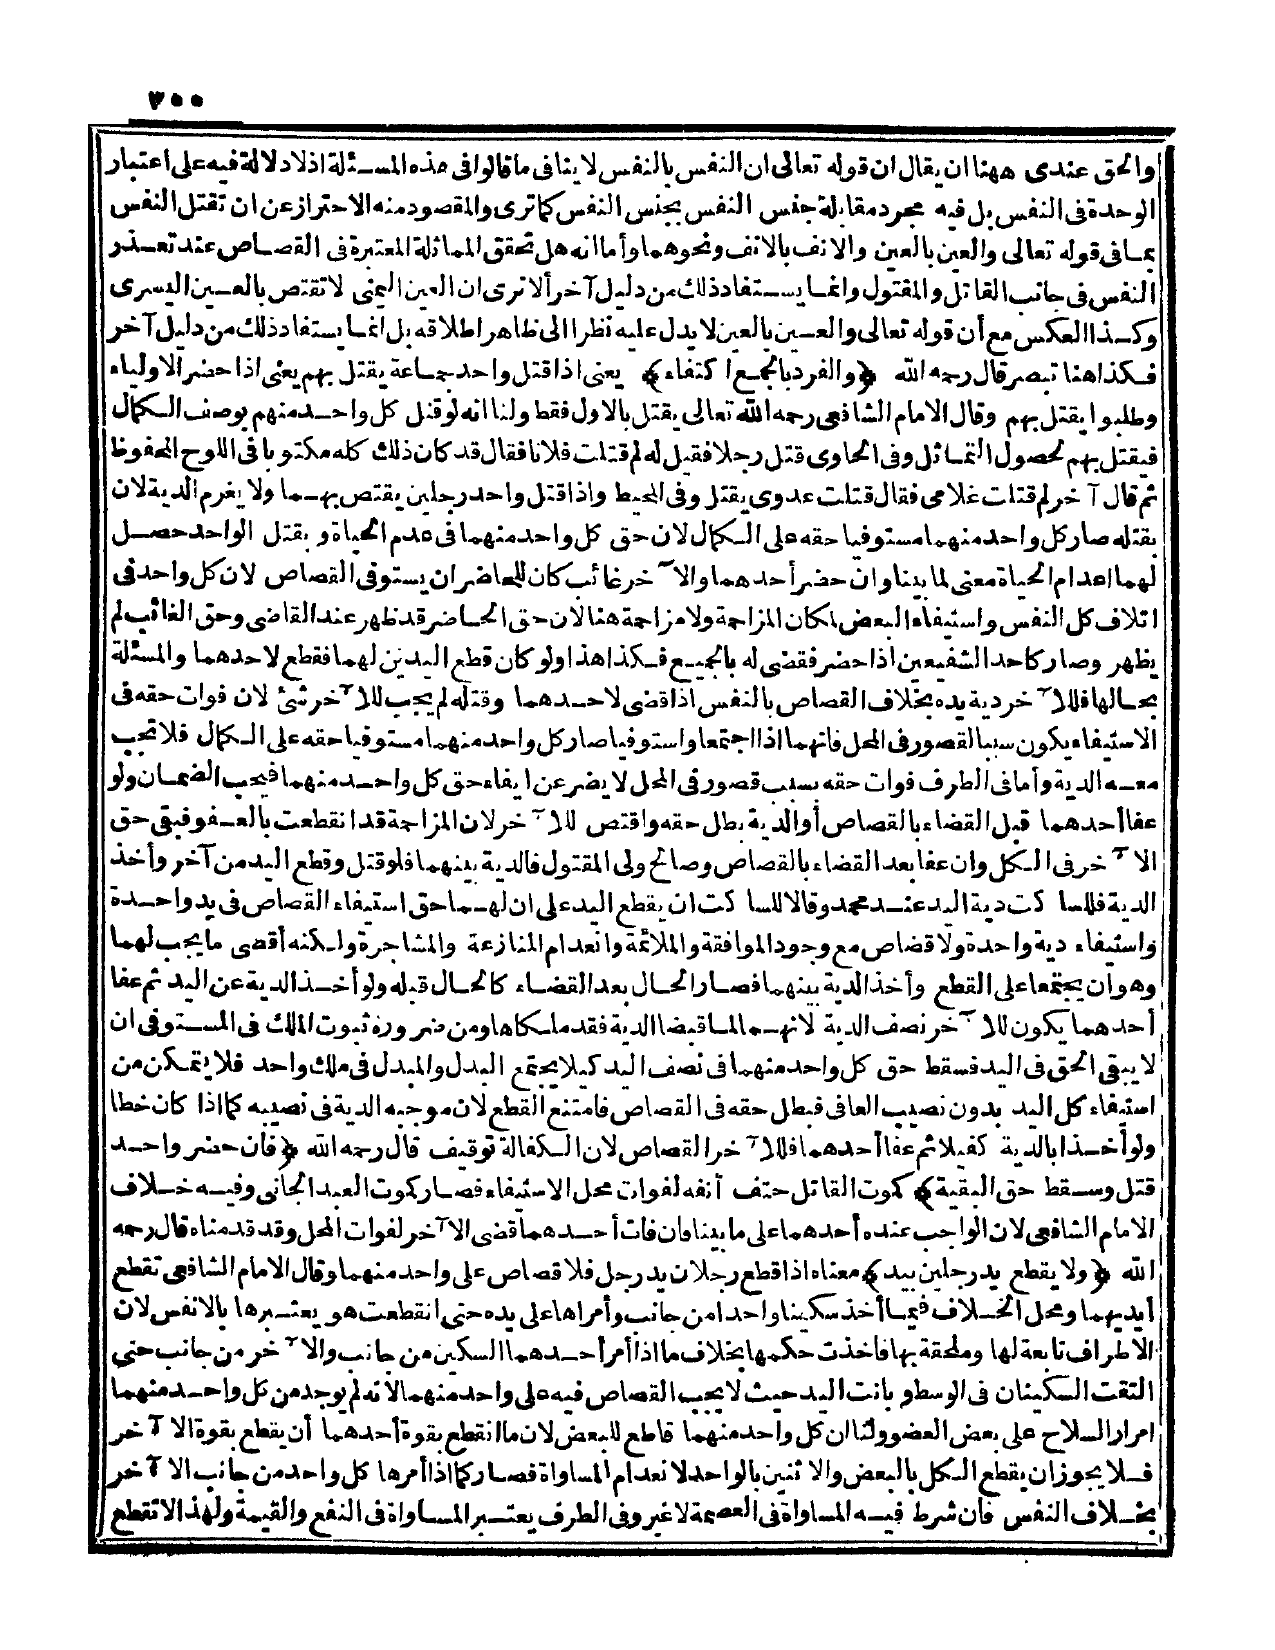 ٣٥٥
والحق عندى ههنا ان يقال ان قوله تعالى ان النفس بالنفس لا ينافى ما قالوا فى هذه المسئلة اذ لا دلالة فيه على اعتبار
الوحدة فى النفس بل فيه مجرد مقابلة جنس النفس بجنس النفس كما ترى والمقصود منه الاحتراز عن ان تقتل النفس
بما فى قوله تعالى والعين بالعين والانف بالانف ونحوهما وأما انه هل تحقق المماثلة المعتبرة فى القصاص عند تعذر
النفس فى جانب القاتل والمقتول وانما يستفاد ذلك من دليل آخر ألا ترى ان العين اليمنى لا تقتص بالعين اليسرى
وكذا العكس مع أن قوله تعالى والعين بالعين لا يدل عليه نظرا الى ظاهر اطلاقه بل انما يستفاد ذلك من دليل آخر
فكذا هنا تبصر قال رحمه الله ﴿والفرد بالجمع اكتفاء﴾ يعنى اذا قتل واحد جماعة يقتل بهم يعنى اذا حضر الاولياء
وطلبوا يقتل بهم وقال الامام الشافعى رحمه الله تعالى يقتل بالاول فقط ولنا انه لو قتل كل واحد منهم بوصف الكمال
فيقتل بهم لحصول التماثل وفى الحاوى قتل رجلا فقيل له لم قتلت فلانا فقال قد كان ذلك كله مكتوبا فى اللوح المحفوظ
ثم قال آخر لم قتلت غلامى فقال قتلت عدوى يقتل وفى المحيط واذا قتل واحد رجلين يقتص بهما ولا يغرم الدية لان
بقتله صار كل واحد منهما مستوفيا حقه على الكمال لان حق كل واحد منهما فى عدم الحياة و بقتل الواحد حصل
لهما اعدام الحياة معنى لما بينا وان حضر أحدهما والآخر غائب كان للحاضر ان يستوفى القصاص لان كل واحد فى
اتلاف كل النفس واستيفاء البعض لمكان المزاحمة ولا مزاحمة هنا لان حق الحاضر قد ظهر عند القاضى وحق الغائب لم
يظهر وصار كاحد الشفيعين اذا حضر فقضى له بالجميع فكذا هذا ولو كان قطع اليدين لهما فقطع لاحدهما والمسئلة
بحالها فللآخر دية يده بخلاف القصاص بالنفس اذا قضى لاحدهما وقتله لم يجب للآخر شئ لان فوات حقه فى
الاستيفاء يكون سببا لقصور فى المحل فانهما اذا اجتمعا واستوفيا صار كل واحد منهما مستوفيا حقه على الكمال فلا تجب
معه الدية وأما فى الطرف فوات حقه بسبب قصور فى المحل لا يضر عن ايفاء حق كل واحد منهما فيجب الضمان ولو
عفا أحدهما قبل القضاء بالقصاص أو الدية بطل حقه واقتص للآخر لان المزاحمة قد انقطعت بالعفو فبقى حق
الآخر فى الكل وان عفا بعد القضاء بالقصاص وصالح ولى المقتول فالدية بينهما فلو قتل وقطع اليد من آخر وأخذ
الدية فللساكت دية اليد عند محمد وقالا للساكت ان يقطع اليد على ان لهما حق استيفاء القصاص فى يد واحدة
واستيفاء دية واحدة ولا قضاص مع وجود الموافقة والملائمة وانعدام المنازعة والمشاجرة ولكنه أقضى ما يجب لهما
وهو أن يجتمعا على القطع وأخذ الدية بينهما فصار الحال بعد القضاء كالحال قبله ولو أخذ الدية عن اليد ثم عفا
أحدهما يكون للآخر نصف الدية لانهما لما قبضا الدية فقد ملكاها ومن ضرورة ثبوت الملك فى المستوفى ان
لا يبقى الحق فى اليد فسقط حق كل واحد منهما فى نصف اليد كيلا يجتمع البدل والمبدل فى ملك واحد فلا يتمكن من
استيفاء كل اليد بدون نصيب العافى فبطل حقه فى القصاص فامتنع القطع لان موجبه الدية فى نصيبه كما اذا كان خطا
ولو أخذا بالدية كفيلا ثم عفا أحدهما فللآخر القصاص لان الكفالة توقيف قال رحمه الله ﴿فان حضر واحد
قتل وسقط حق البقية﴾ كموت القاتل حتف أنفه لفوات محل الاستيفاء فصار كموت العبد الجانى وفيه خلاف
الامام الشافعى لان الواجب عنده أحدهما على ما بينا وان فات أحدهما قضى الآخر لفوات المحل وقد قدمناه قال رحمه
الله ﴿ولا يقطع يد رجلين بيد﴾ معناه اذا قطع رجلان يد رجل فلا قصاص على واحد منهما وقال الامام الشافعى تقطع
أيديهما ومحل الخلاف فيما أخذ سكينا واحدا من جانب وأمراها على يده حتى انقطعت هو يعتبرها بالانفس لان
الاطراف تابعة لها وملحقة بها فاخذت حكمها بخلاف ما اذا أمر أحدهما السكين من جانب والآخر من جانب حتى
التقت السكينان فى الوسط وبانت اليد حيث لا يجب القصاص فيه على واحد منهما لانه لم يوجد من كل واحد منهما
امرار السلاح على بعض العضو ولنا ان كل واحد منهما قاطع للبعض لان ما انقطع بقوة أحدهما أن يقطع بقوة الآخر
فلا يجوز ان يقطع الكل بالبعض والاثنين بالواحد لانعدام المساواة فصار كما اذا أمرها كل واحد من جانب الآخر
بخلاف النفس فان شرط فيه المساواة فى العصمة لا غير وفى الطرف يعتبر المساواة فى النفع والقيمة ولهذا لا تقطع